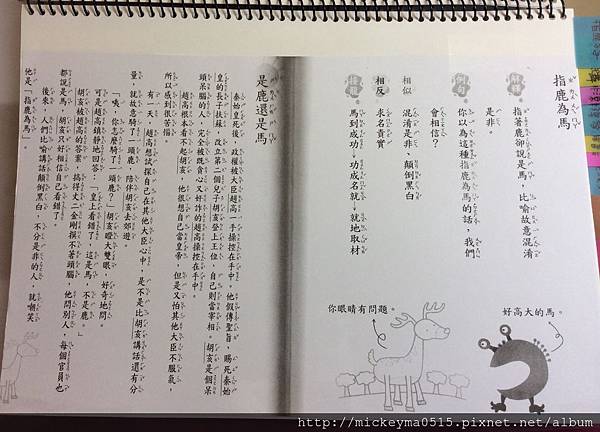 指鹿為馬
解釋
指著鹿卻說是馬，比喻故意混淆
是非。
例句
你以為這種指鹿為馬的話，我們
會相信？
相似
混淆是非、顛倒黑白
相反
求名責實
接龍
馬到成功→功成名就→就地取材
好高大的馬。
你眼睛有問題。
是鹿還是馬
秦始皇死後，政權被大臣趙高一手操控在手中。他假傳聖旨，賜死秦始
皇的長子扶蘇，改立第二個兒子胡亥登上王位，自己則當宰相。胡亥是個呆
頭呆腦的人，完全被既貪心又奸詐的趙高操控在手中。
趙高根本看不起胡亥，他很想自己當皇帝，但是又怕其他大臣不服氣，
所以感到很苦惱。
有一天，趙高想試探自己在其他大臣心中，是不是比胡亥講話還有分
量，就故意騎了一頭鹿，陪伴胡亥去郊遊。
「咦，你怎麼騎了一頭鹿？」胡亥瞪大雙眼，好奇地問。
可是趙高鎮靜地回答：「皇上看錯了，這是馬，不是鹿。」
胡亥被趙高的答案，搞得丈二金剛摸不著頭腦，他問別人，每個官員也
都說是馬，胡亥只好相信自己看錯了。
後來，人們比喻講話顛倒黑白，不分是非的人，就嘲笑
他是「指鹿為馬」。
http://mickeyma0515.pixnet.net/album